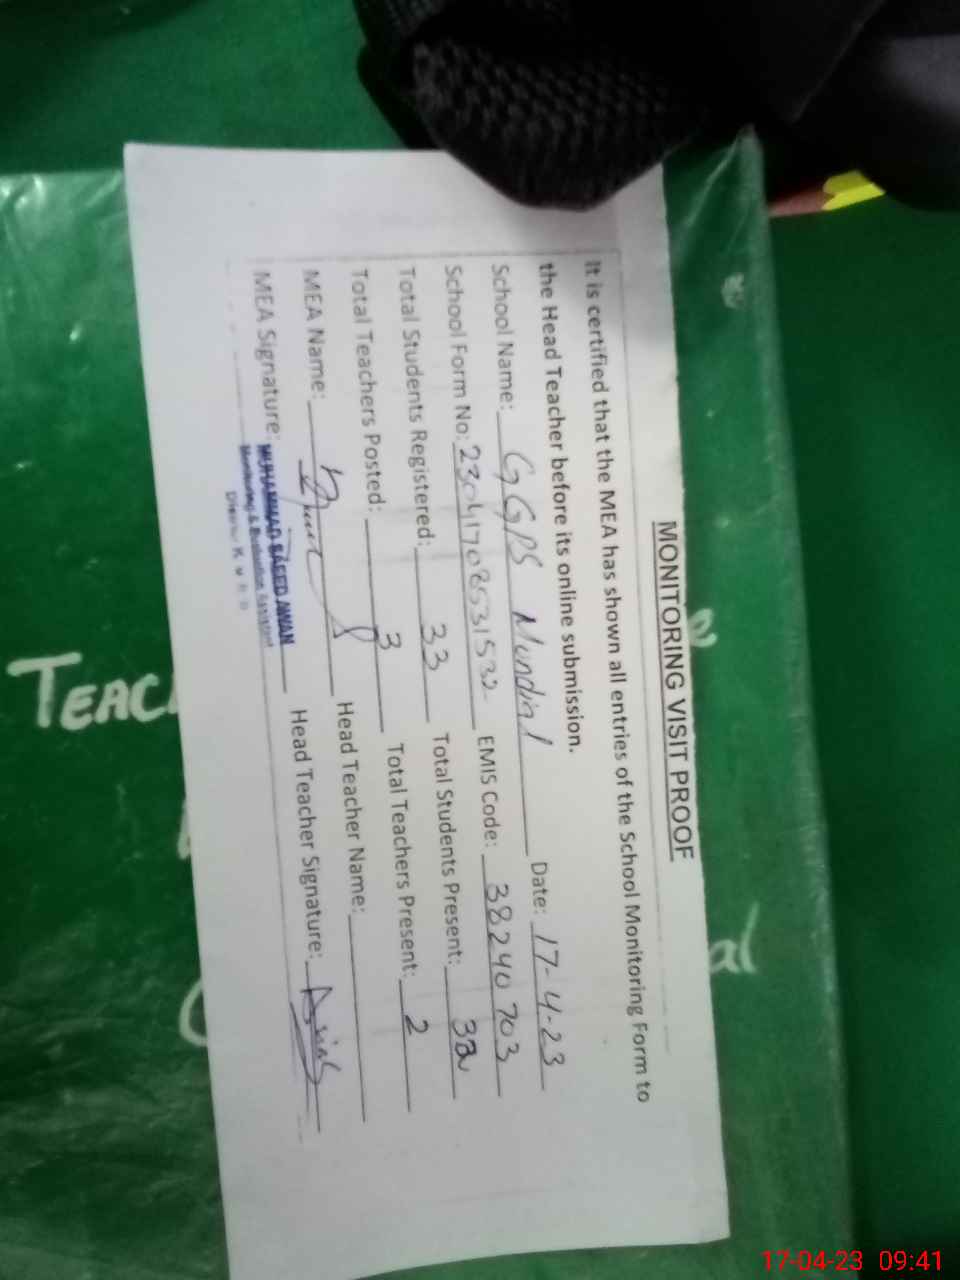 MONITORING VISIT PROOF
It is certified that the MEA has shown all entries of the School Monitoring Form to
the Head Teacher before its online submission.
School Name: GGPS Mundial Date: 17-4-23
School Form No: EMIS Code: 38240703
Total Students Registered: 33 Total Students Present: 32
Total Teachers Posted: 3 Total Teachers Present: 2
MEA Name: Head Teacher Name:
MEA Signature: MUHAMMAD SAEED AWAN Head Teacher Signature:
Monitoring & Evaluation Assistant
TEAC
al
17-04-23 09:41